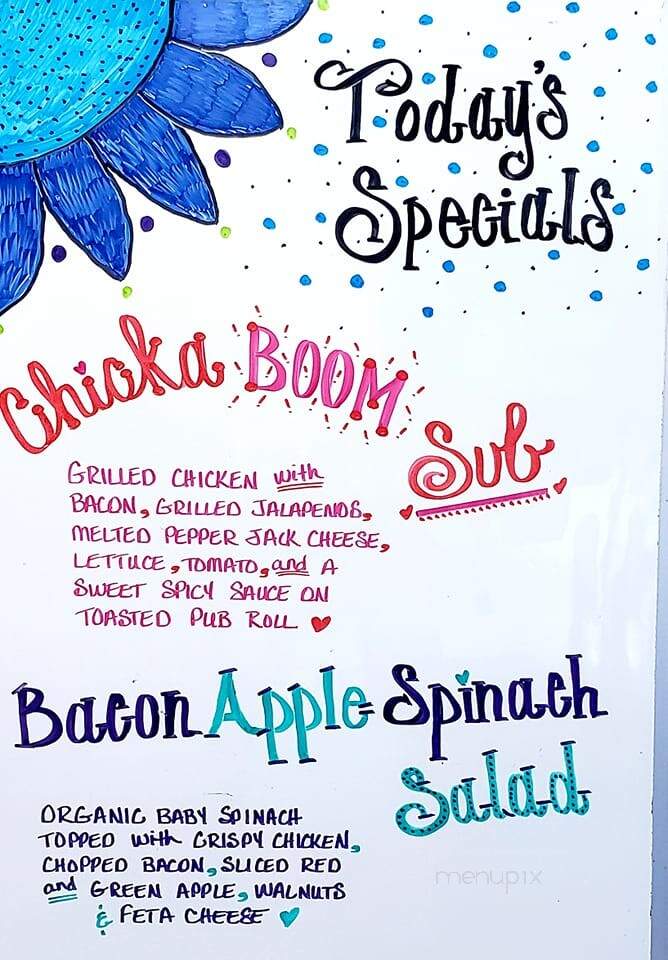 Today's
Specials
Chicka BOOM
Sub
GRILLED CHICKEN with
BACON, GRILLED JALAPENOS,
MELTED PEPPER JACK CHEESE,
LETTUCE, TOMATO, and A
SWEET SPICY SAUCE ON
TOASTED PUB ROLL
Bacon Apple Spinach
Salad
ORGANIC BABY SPINACH
TOPPED with CRISPY CHICKEN,
CHOPPED BACON, SLICED RED
and GREEN APPLE, WALNUTS
& FETA CHEESE
menupix